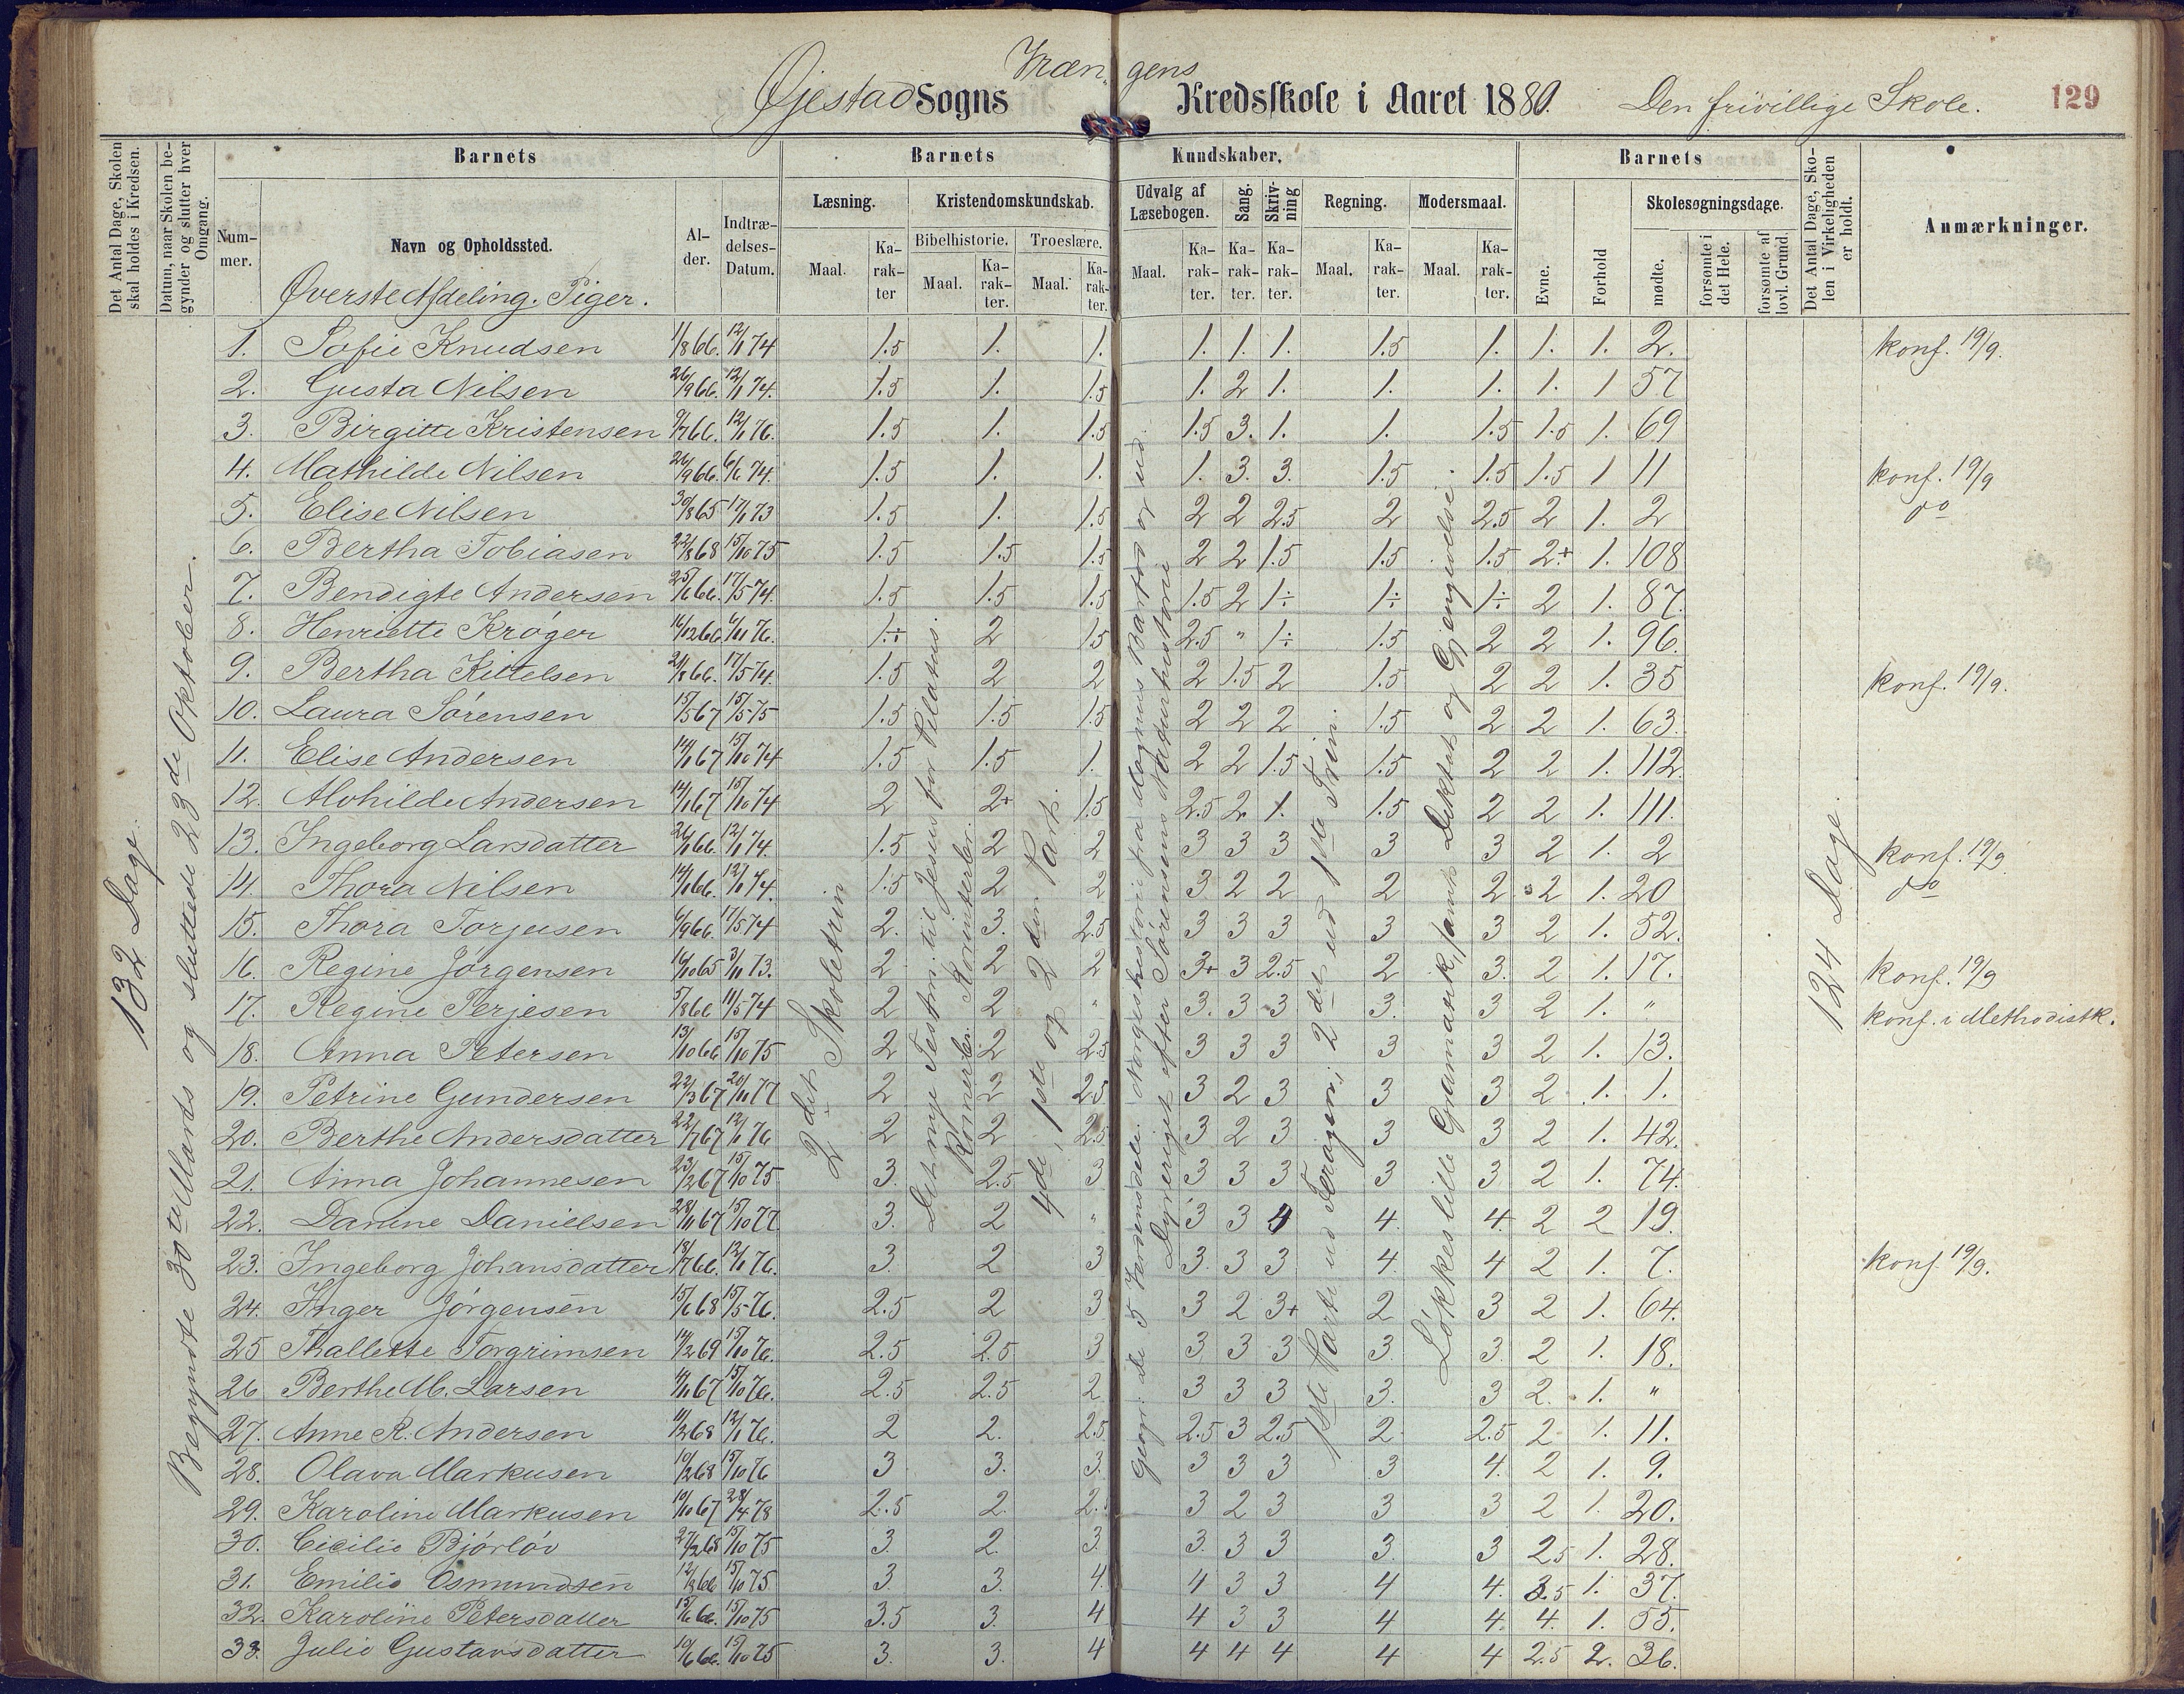 Vræn- gens
Øjestad Sogns Kredsskole i Aaret 1880. Den frivillige Skole. 129
Det Antal Dage, Skolen skal holdes i Kredsen.
Datum, naar Skolen begynder og slutter hver Omgang.
Barnets Barnets Kundskaber. Barnets
Nummer. Navn og Opholdssted. Alder. Indtrædelses-Datum.
Læsning. Kristendomskundskab. Udvalg af Læsebogen. Sang. Skrivning Regning. Modersmaal.
Bibelhistorie. Troeslære.
Maal. Karakter Maal. Karakter. Maal. Karakter. Maal. Karakter. Karakter. Karakter. Maal. Karakter. Maal. Karakter.
Evne. Forhold Skolesøgningsdage. mødte. forsømte i det Hele. forsømte af lovl. Grund.
Det Antal Dage, Skolen i Virkeligheden er holdt.
Anmærkninger.
Øverste Afdeling. Piger.
132 Dage.
Begyndte 30te Marts og sluttede 23de Oktober.
2det Skoletrin
Det nye Testm. til Jesus for Pilatus.
Romerbr. Korinterbr.
4de, 1ste og 2den Part.
Geogr: De 5 Verdensdele. Norgeshistorie fra Magnus Barfod og ud.
Dyreriget efter Sørensens Naturhistorie
1ste Parti ud Foragen; 2det ud 1ste Trin.
Løkkes lille Gramatik, samt Diktat og Gjengivelse.
124 Dage.
1. Sofie Knudsen 1/8 66. 12/1 74 1.5 1. 1. 1. 1. 1. 1.5 1. 1. 1. 2. konf. 19/9.
2. Gusta Nilsen 26/9 66. 12/1 74. 1.5 1. 1.5 1. 2 1. 1. 1. 1. 1 57
3. Birgitte Kristensen 9/7 66. 12/1 76. 1.5 1. 1.5 1.5 3. 1. 1. 1.5 1.5 1. 69
4. Mathilde Nilsen 26/9 66. 6/6 74. 1.5 1. 1. 1. 3. 3. 1.5 1.5 1.5 1 11 konf. 19/9
5. Elise Nilsen 30/8 65 17/1 73 1.5 1. 1.5 2 2 2.5 2 2.5 2 1. 2 do
6. Bertha Tobiasen 22/8 68 15/10 75 1.5 1.5 1.5 2 2 1.5 1.5 1.5 2+ 1. 108
7. Bendigte Andersen 25/6 66. 17/5 74. 1.5 1.5 1.5 1.5 2 1÷ 1÷ 1÷ 2 1. 87.
8. Henriette Krøger 16/12 66 6/11 76. 1.÷ 2 1.5 2.5 " 1÷ 1.5 2 2 1. 96.
9. Bertha Kittelsen 21/8 66. 17/5 74. 1.5 2 2 2 1.5 2 1.5 2 2 1. 35 konf. 19/9.
10. Laura Sørensen 15/5 67 15/5 75 1.5 1.5 1.5 2 2 2 1.5 2 2 1. 63.
11. Elise Andersen 14/1 67 15/10 74 1.5 1.5 1. 2 2 1.5 1.5 2 2 1. 112.
12. Alvhilde Andersen 14/1 67 15/10 74 2 2+ 1.5 2.5 2. 1. 1.5 2 2 1. 111.
13. Ingeborg Larsdatter 26/1 66. 12/1 74. 1.5 2 2 3 3 3 3 3 2 1. 2 konf. 19/9
14. Thora Nilsen 14/1 66. 12/1 74. 1.5 2 2 3 2 2 2 2 2 1. 20 do
15. Thora Torjusen 6/9 66. 17/5 74 2. 3. 2.5 3 3 3 3 3 2 1. 52.
16. Regine Jørgensen 16/10 65 3/11 73. 2 2 2 3+ 3 2.5 2 3. 2 1. 17. konf. 19/9
17. Regine Terjesen 5/8 66 11/5 74 2 2 " 3. 3 3 3. 3 2 1. " konf. i Methodistk.
18. Anna Petersen 13/10 66 15/10 75 2 2 2.5 3 3 3 3 3 2 1. 13.
19. Petrine Gundersen 22/3 67 20/11 77 2 2 2.5 3 2 3 3 3 2 1. 1.
20. Berthe Andersdatter 22/7 67 12/1 76 2 2 2.5 3 2 3 3 3 2 1. 42.
21. Anna Johannesen 23/2 67 15/10 75 3. 2.5 3 3 3 3 3 3 2 1. 74.
22. Danine Danielsen 28/11 67 15/10 77 3. 2 " 3 3 4 4. 4. 2 2 19.
23. Ingeborg Johansdatter 18/7 66. 12/1 76. 3. 2 3 3. 3 3 4. 4 2 1. 7. konf 19/9.
24. Inger Jørgensen 15/6 68 15/5 76. 2.5 2 3 3 2 3+ 2 3 2 1. 64.
25 Thallette Torgrimsen 14/2 69 15/10 76. 2.5 2.5 3 3 3 3 3. 3. 2 1. 18.
26 Berthe M. Larsen 4/11 67 15/10 76. 2.5 2.5 2 3 3 3 3. 3 2. 1. "
27. Anne R. Andersen 11/2 68 12/1 76. 2 2. 2.5 2.5 3 2.5 2 2.5 2 1. 11.
28. Olava Markusen 10/2 68 15/10 76 3 3. 3. 3 3 3 3 4. 2 1. 9.
29. Karoline Markusen 10/10 67 28/4 78 2.5 2. 2. 3 2 3 3 3 2 1. 20.
30. Cicilie Bjørløv 27/2 68 15/10 75 3. 2. 3. 3. 3 3 3. 3 2.5 1. 28.
31. Emilie Osmundsen 12/8 66 15/10 75 3. 3. 4. 4 3 3 4 4. 3.5 1. 37.
32. Karoline Petersdatter 15/6 66. 15/10 75 3.5 3. 4 4 3 3 4 4. 4. 1. 55.
33. Julie Gustavsdatter 10/6 66. 15/10 75 3. 3. 4 4 4 4 4 4 2.5 2. 36.